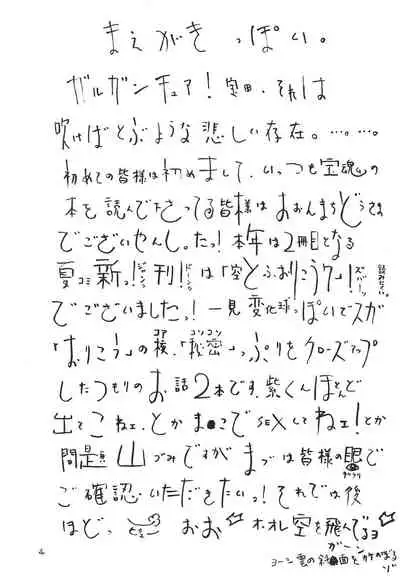 まえがきっぽい。
ガルガンチュア!宝田、それは
吹けばとぶような悲しい存在。…。…。
初めての皆様は初めまして、いっつも宝魂の
本を読んで下さってる皆様はおおんまちどうさま
でございやんしたっ!本年は2冊目となる
夏コミ新っ!刊!は「空とぶおりこう7」!
でございましたっ!一見変化球っぽいでスガ
「おりこう」の核、「秘密」っぷりをクローズアップ
したつもりのお話2本です、紫くんほとんど
出てこねェ、とかま●こでSEXしてねェ!とか
問題山づみですがまづは皆様の眼で
ご確認いただきたいっ!それでは後
ほどっ おお ホオレ空を飛んでるヨ
ヨーン雲の斜面を